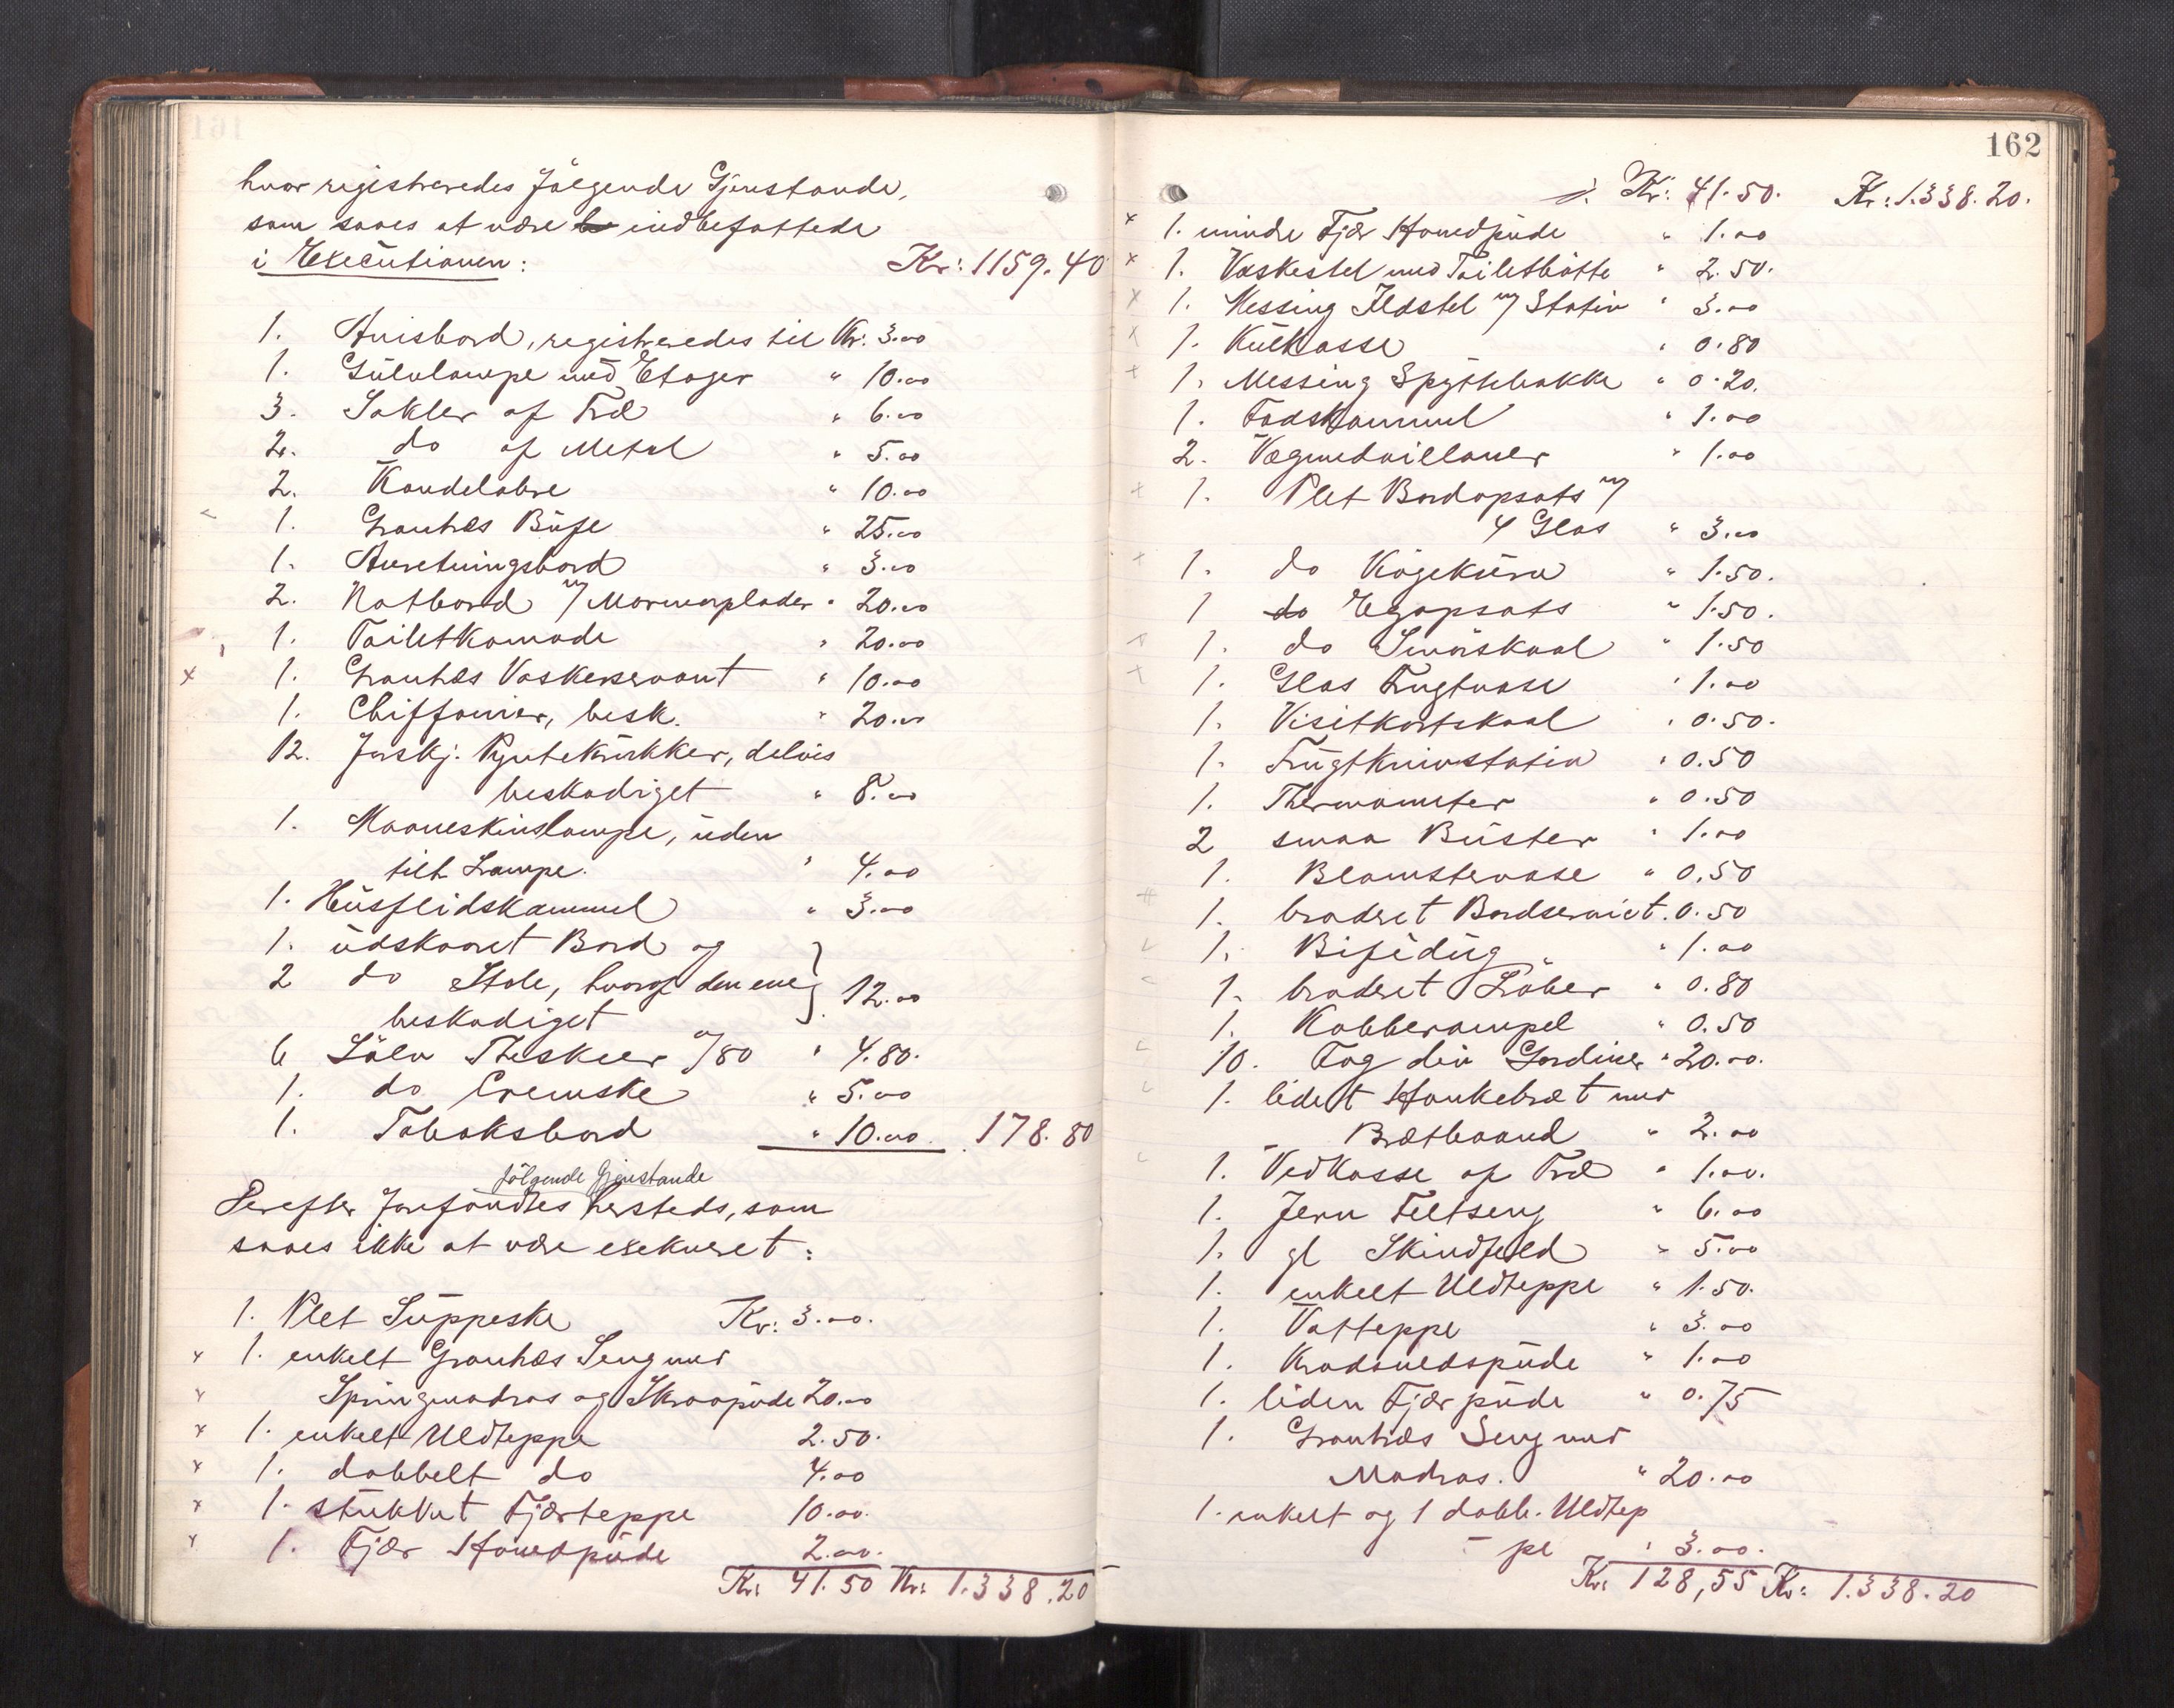 hvor registreredes følgende Gjenstande,
som saaes at være indbefattede
i Executionen: Kr: 1159.40
1. Avisbord, registreredes til Kr. 3.00
1. Gulvlampe med Etager " 10.00
3. Sokler af Træ " 6.00
2. do af Metal " 5.00
2. Kandelabre " 10.00
1. Grantræs Büfe " 25.00
1. Anretningsbord " 3.00
2. Natbord m/ Marmorplader " 20.00
1. Toiletkomode " 20.00
1. Grantræs Vaskeservant " 10.00
1. Chiffonier, besk. " 20.00
12. forskj. Pyntekrukker, delvis
beskadiget " 8.00
1. Maaneskinslampe, uden
tilh. Lampe. " 4.00
1. Husflidskammel " 3.00
1. udskaaret Bord og
2 do Stole, hvoraf den ene 12.00
beskadiget
6 Sølv Theskeer a/80 " 4.80.
1. do Cremske " 5.00
1. Tobaksbord " 10.00. 178.80
følgende Gjenstande
Derefter forefandtes hersteds, som
saaes ikke at være exekveret:
1. Plet Suppeske Kr: 3.00.
x 1. enkelt Grantræs Seng med
x Springmadras og Skraapude 20.00
x 1. enkelt Uldteppe 2.50.
x 1. dobbelt do 4.00
x 1. stukket Fjærteppe 10.00.
x 1. Fjær Hovedpude 2.00.
Kr: 41.50 Kr: 1.338.20
162
Kr: 41.50. Kr: 1.338.20.
x 1. mindre Fjær Hovedpude " 1.00
x 1. Vaskestel med Toiletbøtte " 2.50.
x 1. Messing Ildstel m/ Stativ " 3.00
x 1. Kulkasse " 0.80
x 1. Messing Spyttebakke " 0.20.
1. Fodskammel " 1.00
2. Vægmedailloner " 1.00
x 1. Plet Bordopsats m/
4 Glas " 3.00
x 1. do Kagekurv " 1.50.
1 do Egopsats " 1.50.
x 1. do Smørskaal " 1.50
x 1. Glas Frugtvase " 1.00
1. Visitkortskaal " 0.50.
1. Frugtknivstativ " 0.50
1. Thermometer " 0.50
2 smaa Buster " 1.00
1. Blomstervase " 0.50
1. broderet Bordserviet. 0.50
1. Bufedug " 1.00
1. broderet Løber " 0.80
1. Kobberampel " 0.50
10. Fag div Gardiner " 20.00.
1. lidet Hankebræt med
Brætbaand " 2.00
1. Vedkasse af Træ " 1.00.
1. Jern Feltseng " 6.00
1. gl Skindfeld " 5.00
1. enkelt Uldteppe " 1.50.
1. Vatteppe " 3.00
1. Krøduldspude " 1.00
1. liden Fjær pude " 0.75
1. Grantræs Seng med
Madras. " 20.00
1. enkelt og 1 dobb. Uldtep
- pe " 3.00.
Kr: 128,55 Kr: 1.338.20